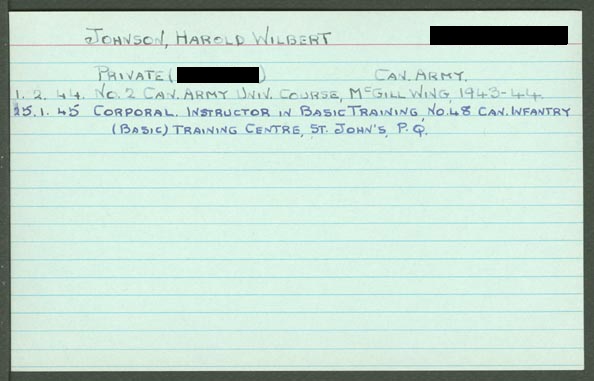 JOHNSON, HAROLD WILBERT
PRIVATE ( ) CAN. ARMY.
1. 2. 44. NO. 2 CAN. ARMY UNIV. COURSE, McGILL WING, 1943-44.
25. 1. 45 CORPORAL. INSTRUCTOR IN BASIC TRAINING, NO. 48 CAN. INFANTRY
(BASIC) TRAINING CENTRE, ST. JOHN'S, P.Q.